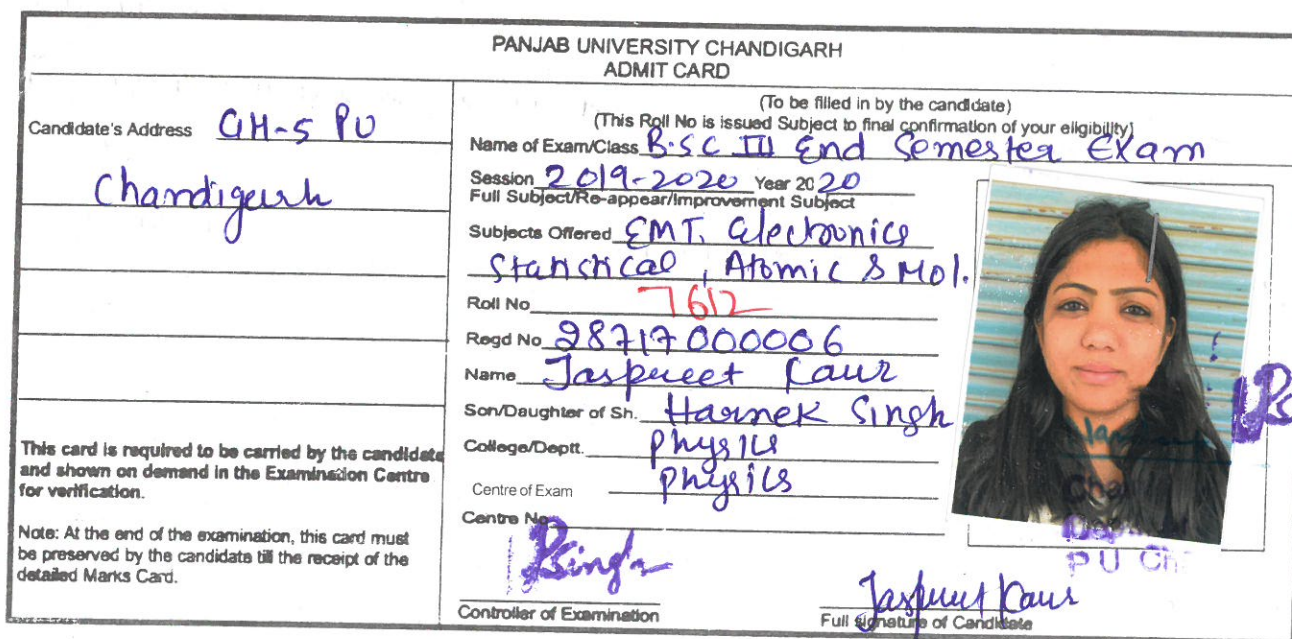 PANJAB UNIVERSITY CHANDIGARH
ADMIT CARD
Candidate's Address GH-5 PU
Chandigarh
This card is required to be carried by the candidate
and shown on demand in the Examination Centre
for verification.
Note: At the end of the examination, this card must
be preserved by the candidate till the receipt of the
detailed Marks Card.
(To be filled in by the candidate)
(This Roll No is issued Subject to final confirmation of your eligibility)
Name of Exam/Class B.SC III End Semester Exam
Session 2019-2020 Year 2020
Full Subject/Re-appear/Improvement Subject
Subjects Offered EMT, Electronics
Statistical, Atomic & Mol.
Roll No 7612
Regd No 28717000006
Name Jaspreet Kaur
Son/Daughter of Sh. Harnek Singh
College/Deptt. Physics
Centre of Exam Physics
Centre No
Singh
Controller of Examination
Jaspreet Kaur
Full signature of Candidate
P U Ch